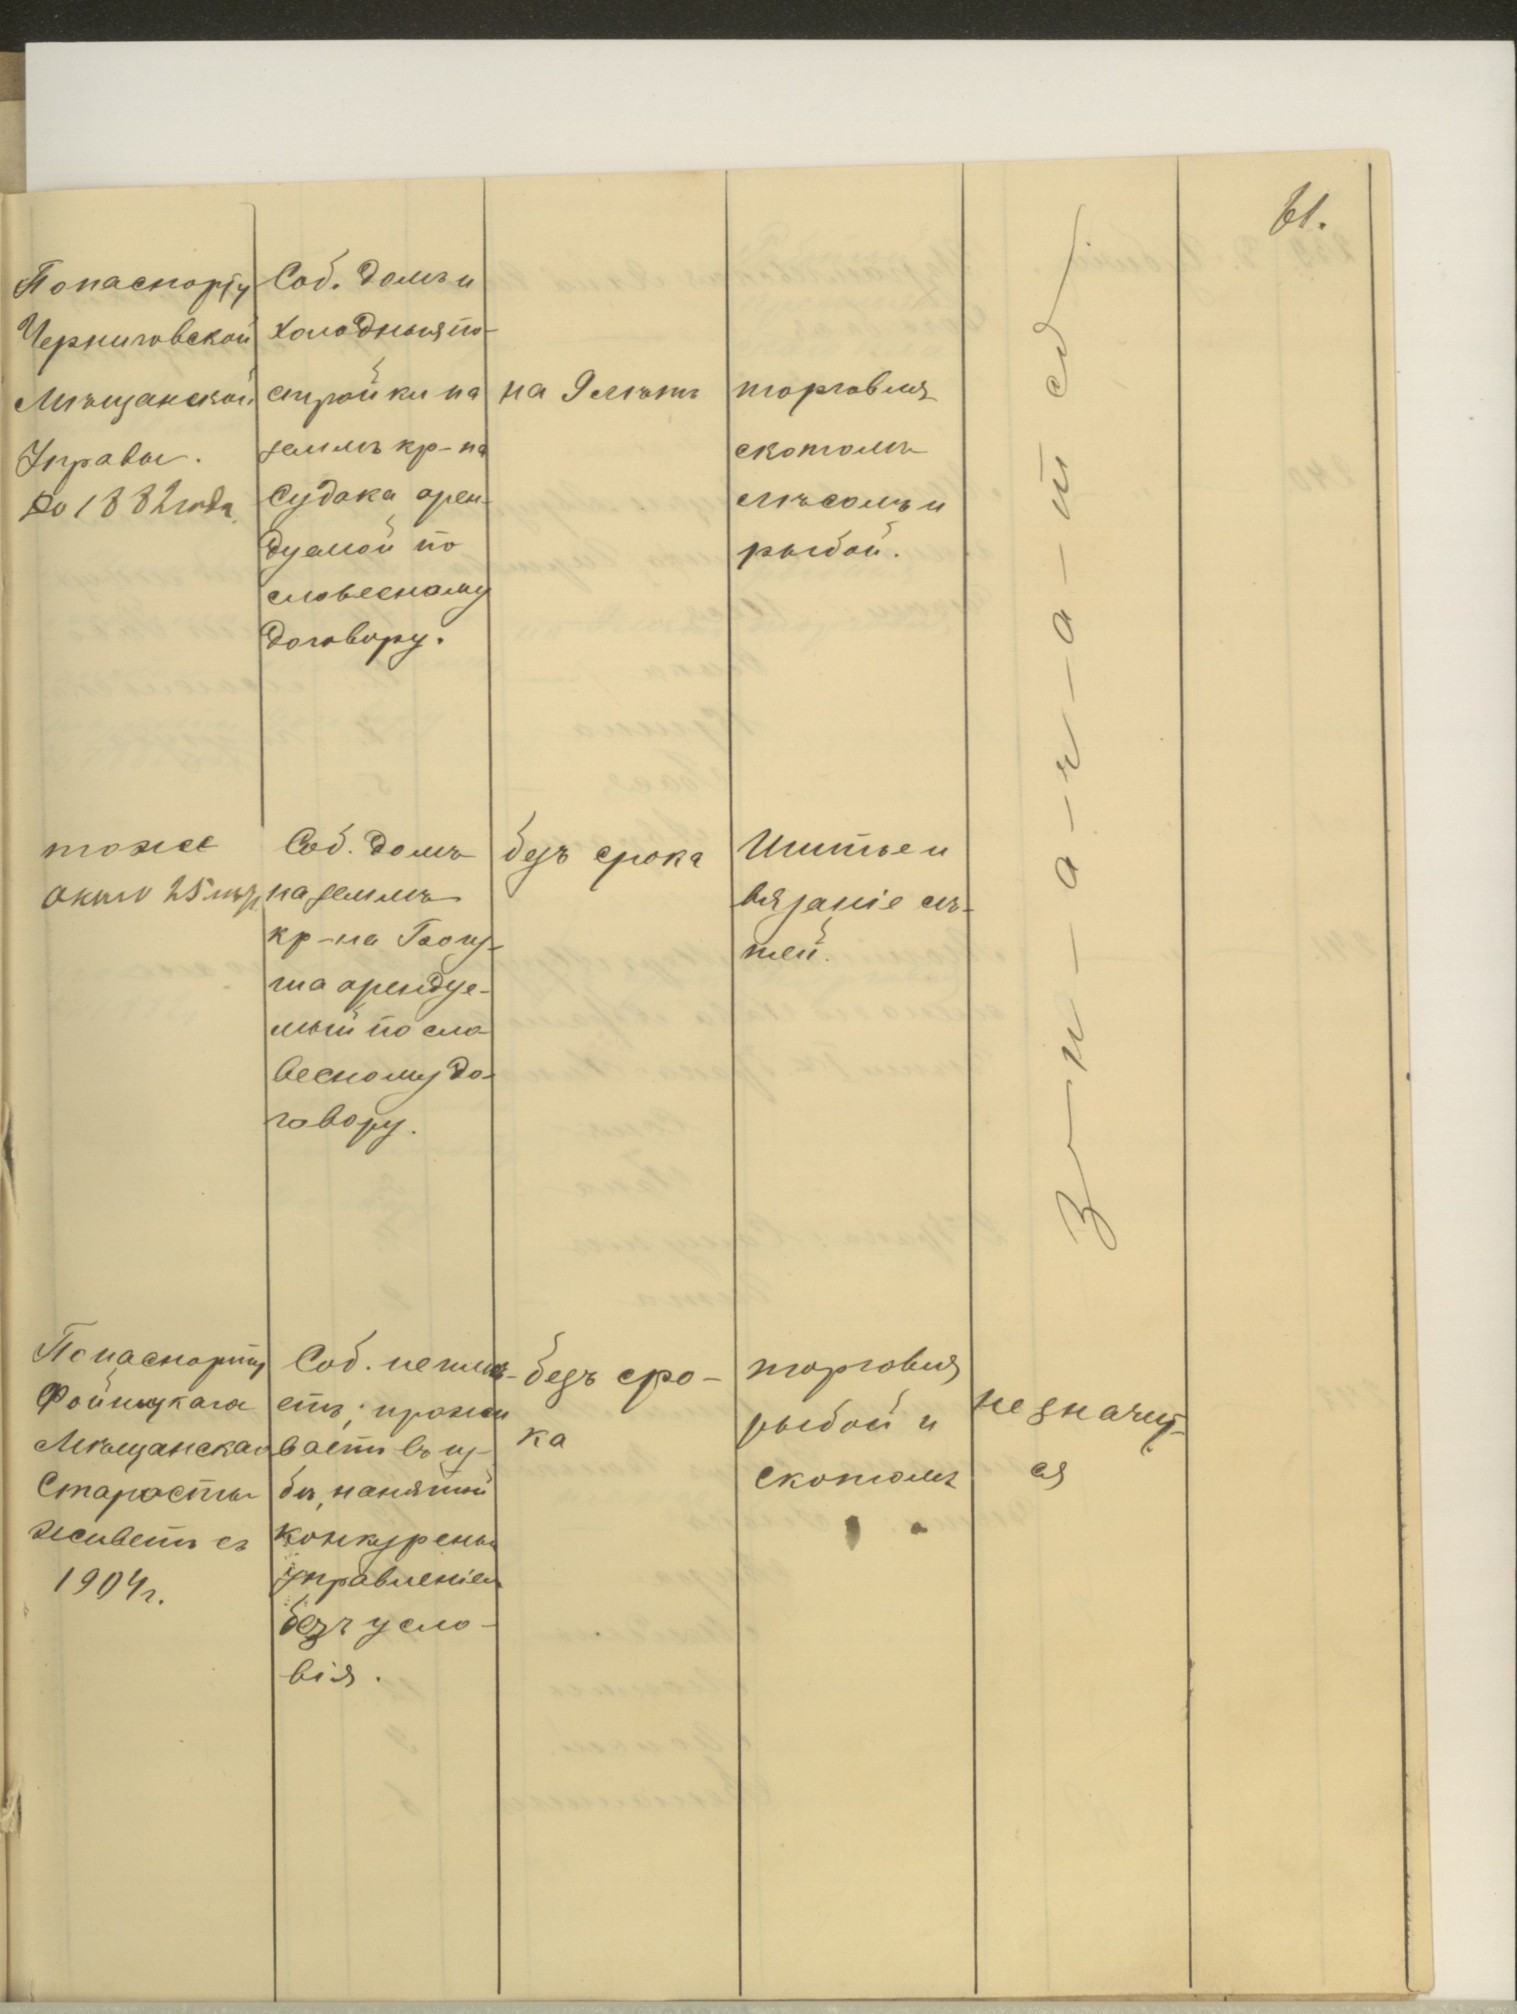 61.
По паспорту
Черниговской
Мѣщанской
Управы.
до 1882 года.
Соб. домъ и
холодныя по-
стройки на
землѣ кр-на
Судака арен-
дуемой по
словесному
договору.
на 9 лѣтъ
торговля
скотомъ
мясомъ и
рыбой.
З-н-а-ч-а-т-ся
тоже
около 25 лѣтъ
Соб. домъ
на землѣ
кр-на
арендуе-
мый по сло-
весному до-
говору.
безъ срока
Шитье и
вязаніе сѣ-
тей.
По паспорту
Мѣщанскаго
Старосты
живетъ съ
1904 г.
Соб. не имѣ-
етъ; прожи
ваетъ въ из-
бѣ, нанятой
конкурсным
управленіем
безъ усло-
вія.
безъ сро-
ка
торговля
рыбой и
скотомъ
не значит-
ся